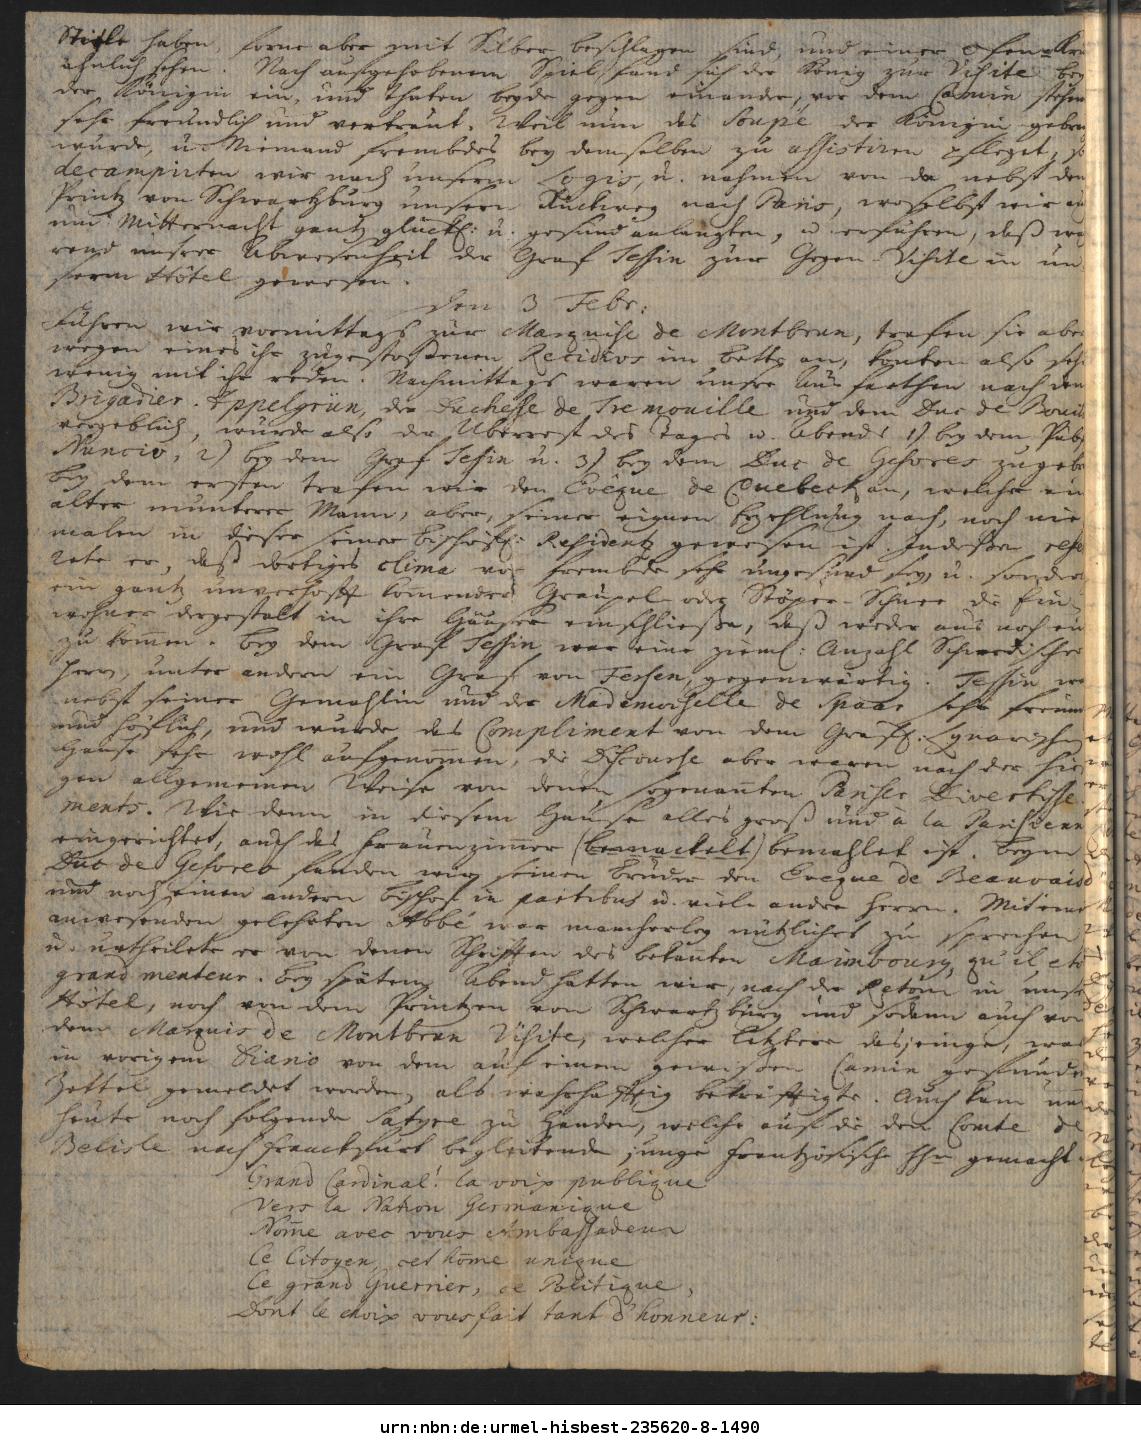 Stiele haben, forne aber mit Silber beschlagen sind, und einer Ofen-
ähnlich sehen. Nach aufgehobenem Spiel fand sich der König zur Visite bey
der Königin ein, und thaten beyde gegen einander, vor dem Camin stehen
sehr freundlich und vertraut. Weil nun das Soupé der Königin geben
wurde, u. Niemand frembdes bey demselben zu assistiren pfleget, so
decampirten wir nach unserm Logis, u. nahmen von da nebst dem
Printz von Schwartzburg unsern Rückweg nach Paris, woselbst wir
um Mitternacht gantz glückl: u. gesund anlangten, u. erfuhren, daß
rend unsrer Abwesenheit der Graf Tessin zur Gegen-Visite in un
serm Hôtel gewesen.
den 3 Febr:
Fuhren wir vormittags zur Marquise de Montbrun, trafen sie aber
wegen eines ihr zugestossenen Recidivs im Bette an, konten also sehr
wenig mit ihr reden. Nachmittags waren unsre Ausfarthen nach dem
Brigadier Eppelgrün, der Duchesse de Tremouille und dem Duc de
vergeblich, wurde also der Überrest des Tages u. Abends 1) bey dem
Nuncio, 2) bey dem Graf Tessin u. 3) bey dem Duc de Gesvres
bey dem ersten trafen wir den Evêque de Quebeck an, welcher ein
alter munterer Mann, aber, seiner eignen Erzehlung nach, noch nie
malen in dieser seiner Bischöfl: Residentz gewesen ist. Indessen
rete er, daß dortiges clima vor frembde sehr ungesund sey, u.
ein gantz unverhofft komender Graupel oder Schnee die Ein
wohner dergestalt in ihre Häuser einschliesse, daß weder aus noch ein
zu komen. Bey dem Graf Tessin war eine zieml: Anzahl Schwedischer
Herrn, unter andern ein Graf von Fersen, gegenwärtig. Tessin
nebst seiner Gemahlin und der Mademoiselle de Spaar sehr
und höflich, und wurde das Compliment von dem Gräfl: Lynarischen
Hause sehr wohl aufgenommen, die Discourse aber waren nach der
gen allgemeinen Weise von denen sogenannten Pariser Divertisse
ments. Wie denn in diesem Hause alles groß und à la Parisienne
eingerichtet, auch das Frauenzimer bemahlet ist. Beym
Duc de Gesvres funden wir seinen Bruder den Eveque de Beauvais
und noch einen andern Bischof in partibus u. viele andre Herrn. Mit einem
anwesenden gelehrten Abbé war mancherley nützliches zu sprechen
u. urtheilete er von denen Schriften des bekanten Maimbourg, qu'il
grand menteur. Bey spätem Abend hatten wir, nach der Retour in unser
Hôtel, noch von dem Printzen von Schwartzburg und sodann auch von
dem Marquis de Montbrun Visite, welcher letztere dasjenige, was
in vorigem Diario von dem auf einem gewissen Camin gefunde
Zettel gemeldet worden, als wahrhafftig bekräfftigte. Auch kam
heute noch folgende Satyre zu Handen, welche auf die den Comte de
Belisle nach Franckfurt begleitende junge Frantzösische gemacht
Grand Cardinal! la voix publique
Vers la Nation Germanique
Nome avec vous Ambassadeur
Ce Citoyen, cet home unique
Ce grand Guerrier, ce Politique,
Dont le choix vous fait tant d'honneur:
urn:nbn:de:urmel-hisbest-235620-8-1490